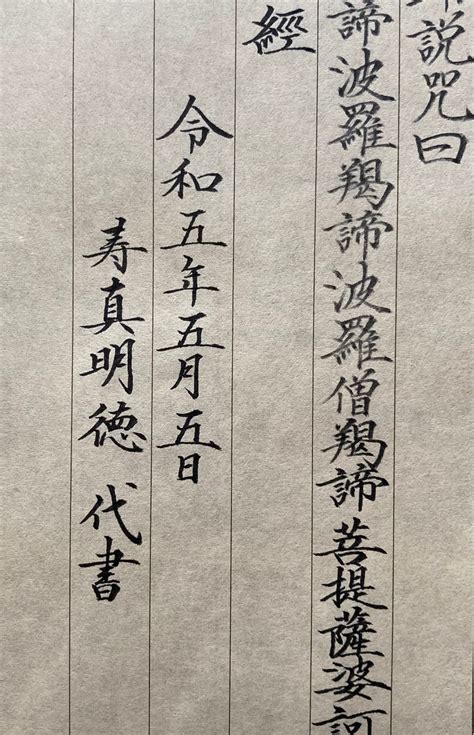 說咒曰
諦波羅羯諦波羅僧羯諦菩提薩婆訶
經
令和五年五月五日
寿真明徳 代書